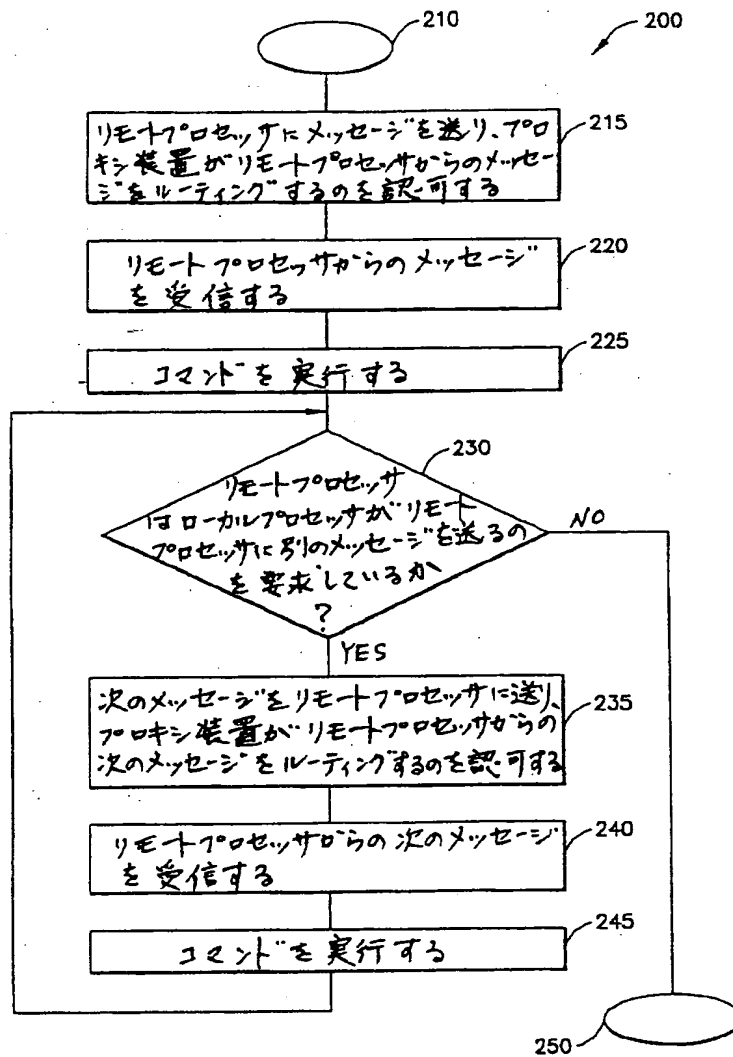 210
200
リモートプロセッサにメッセージを送り、プロ
キシ装置がリモートプロセッサからのメッセー
ジをルーティングするのを認可する
215
リモートプロセッサからのメッセージ
を受信する
220
コマンドを実行する
225
230
リモートプロセッサ
はローカルプロセッサがリモート
プロセッサに別のメッセージを送るの
を要求しているか
?
NO
YES
次のメッセージをリモートプロセッサに送り、
プロキシ装置がリモートプロセッサからの
次のメッセージをルーティングするのを認可する
235
リモートプロセッサからの次のメッセージ
を受信する
240
コマンドを実行する
245
250